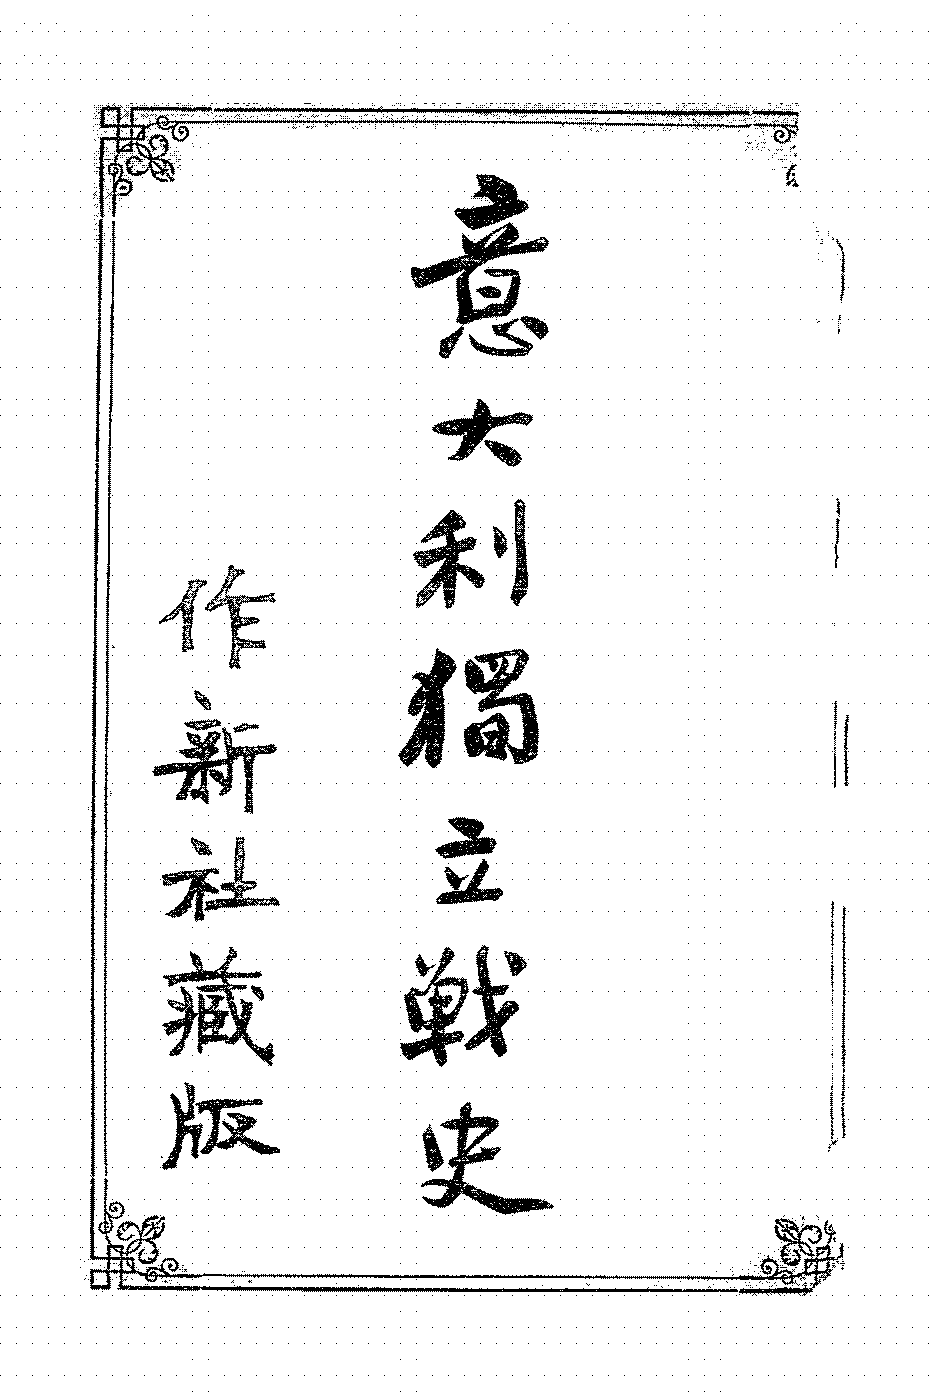 意大利獨立戰史
作新社藏版